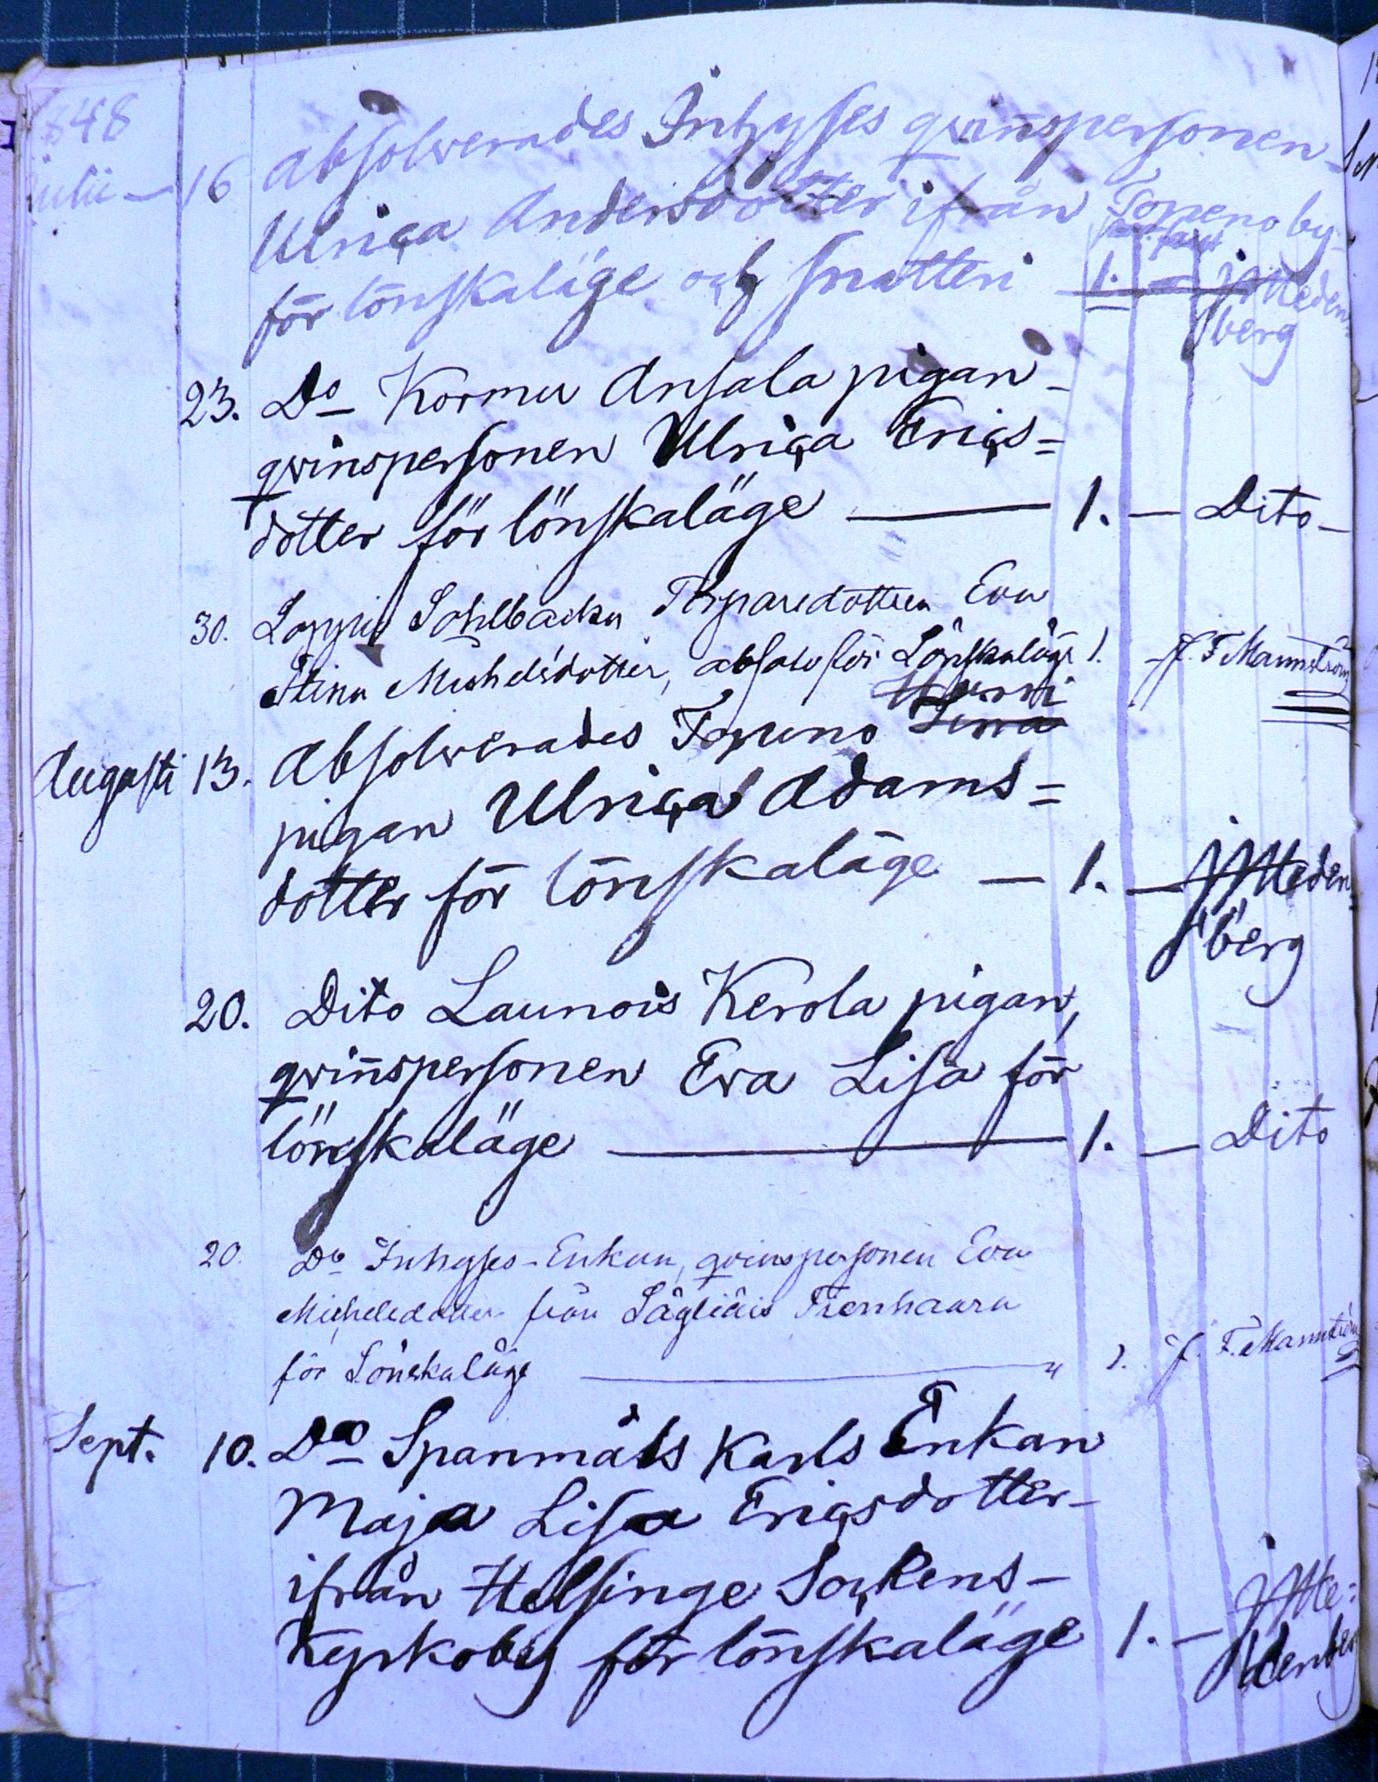 1848
julii — 16 Absolverades Inhyses qvinspersonen
Ulrica Andersdotter ifrån Topeno by
för lönskaläge och snatteri 1. — JHeden
berg
23. Do Kormu Ansala pigan
qvinspersonen Ulrica Erics=
dotter för lönskaläge — 1. — Dito
30. Loppis Sohlbacka Torparedottren Eva
Stina Michelsdotter, absolv för Lönskaläge 1. J. F Mannström
Augusti 13. Absolverades Topeno
pigan Ulrica Adams=
dotter för lönskaläge — 1. — JHeden
berg
20. Dito Launois Kerola pigan,
qvinspersonen Eva Lisa för
lönskaläge — 1. — Dito
20. Do Inhyses-Enkan, qvinspersonen Eva
Michelsdotter från Sägliäis
för Lönskaläge — " 1. J. F. Mannström
Sept. 10. Do Spanmåls Karls Enkan
Maja Lisa Ericsdotter
ifrån Helsinge Sockens
Kyrkoby för lönskaläge 1. — JHe=
denberg